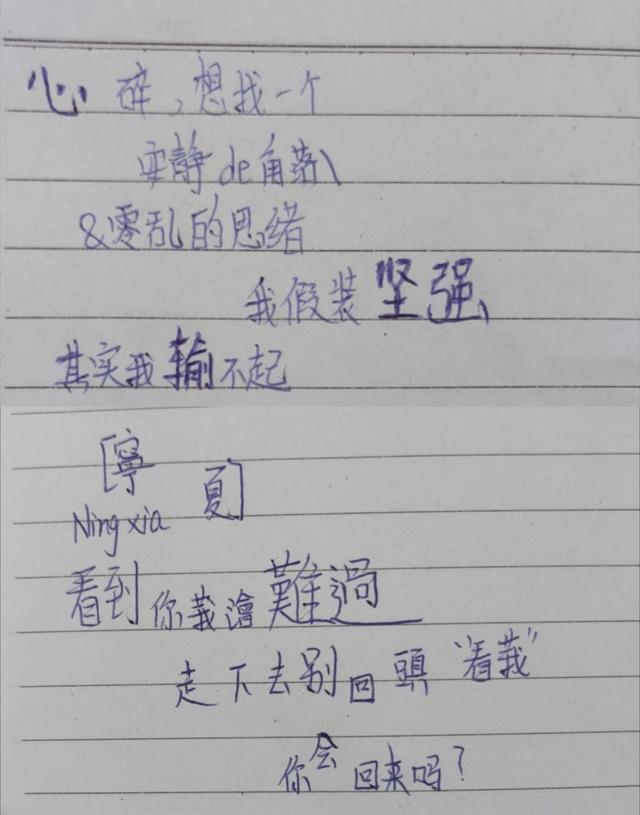 心碎,想找一个
安静de角落\
&零乱的思绪
我假装坚强
其实我输不起
[寧夏]
Ning xia
看到你莪澮難過
走下去别回頭“看莪”
你会回来吗?